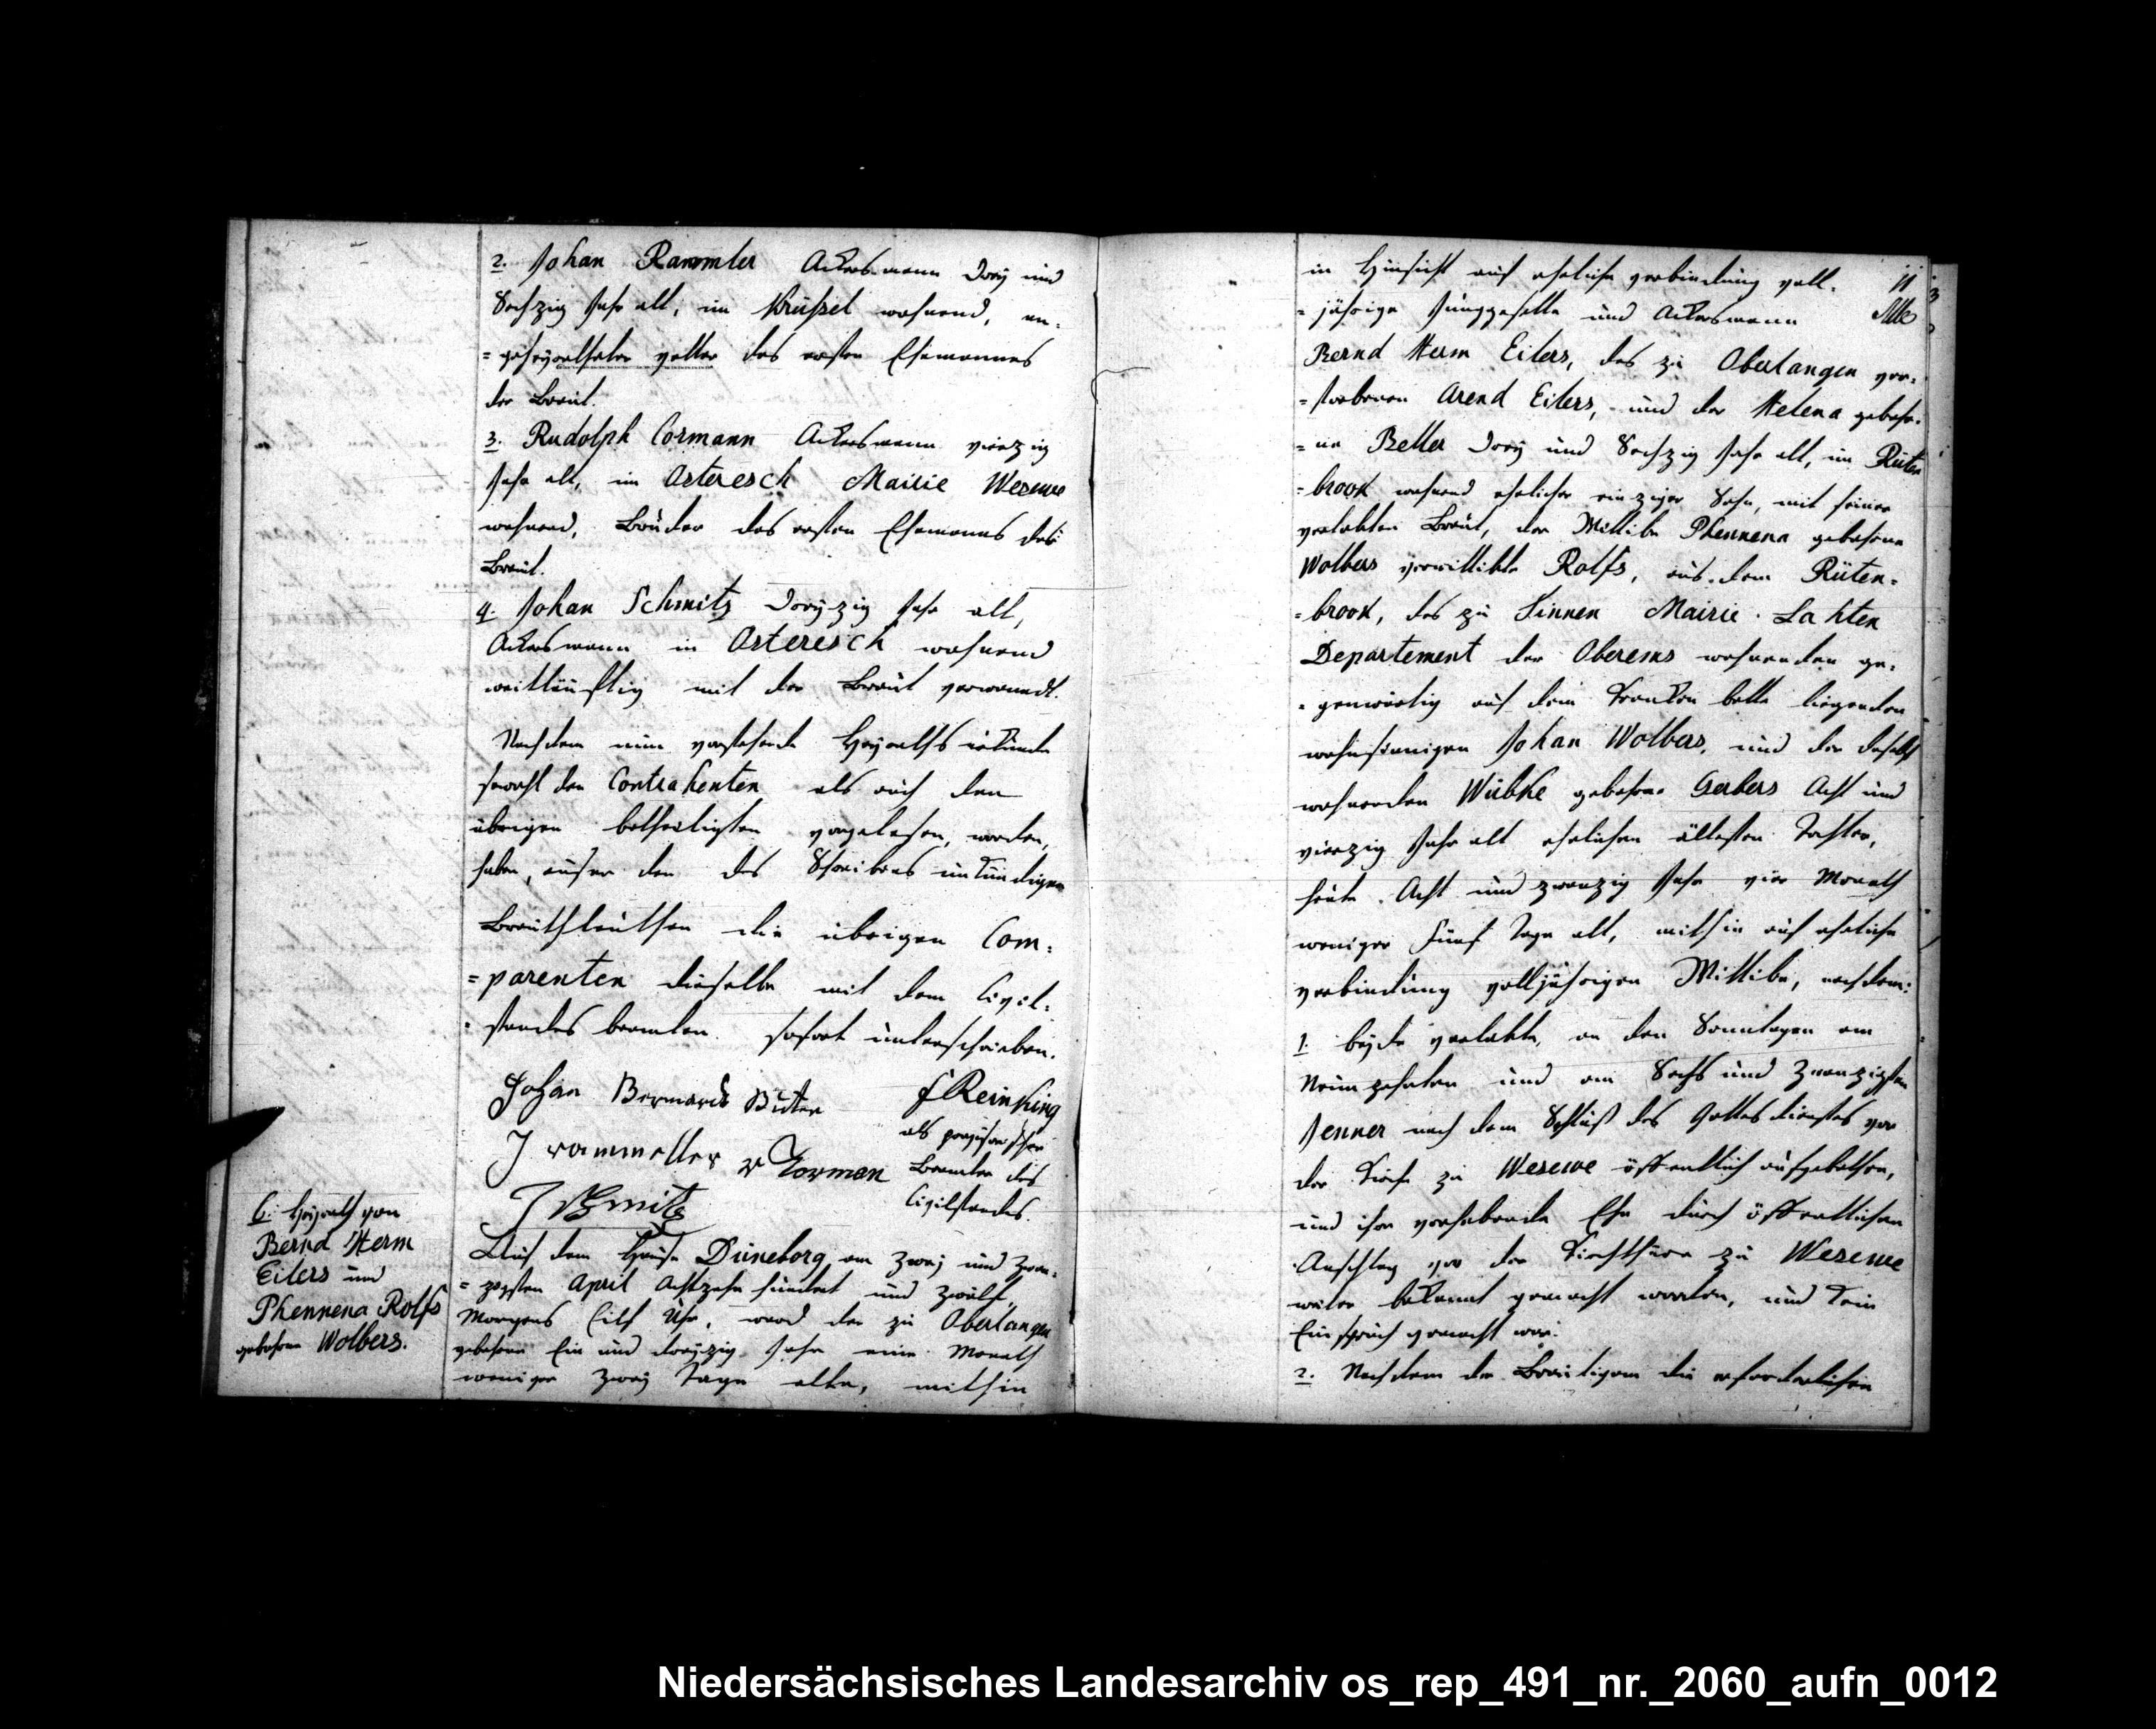 2. Johan Rammler Ackersmann Drey und
Sechzig Jahr alt, im Krüßel wohnend, an-
=geheyratheter Vetter des ersten Ehemannes
der Braut.
3. Rudolph Cormann Ackersmann vierzig
Jahr alt, im Osteresch Mairie Wesuwe
wohnend, Bruder des ersten Ehemanns der
Braut.
4. Johan Schmitz Dreyzig Jahr alt,
Ackersmann in Osteresch wohnend
weitläuftig mit der Braut verwandt.
Nachdem nun vorstehende Heyraths urkunde
sowohl den Contrahenten als auch den
übrigen betheiligten vorgelesen worden,
haben, außer den des Schreibens unkundigen
Brauthleuthen die übrigen Com=
=parenten dieselbe mit dem Civil=
standes beamten sofort unterschrieben.
Johan Bernard Büter
F Reinking
als provisorischer
Beamter des
Civilstandes.
J rammeller
R Corman
J Schmitz
6. Heyrath von
Bernd Herm
Eilers und
Phennena Rolfs
gebohrne Wolbers.
Auf dem Hause Düneborg am zwey und zwan=
=zigsten April Achtzehnhundert und zwölf,
Morgens Eilf Uhr, ward der zu Oberlangen
gebohrne Ein und dreyzig Jahr eine Monath
weniger zwey Tage alte, mithin
11
in Hinsicht auf eheliche verbindung voll=
=jährige Junggeselle und Ackersmann
Bernd Herm Eilers, des zu Oberlangen ver=
=storbenen Arend Eilers, und der Helena gebohr=
=ne Beller Drey und Sechzig Jahr alt, im Rüten
=brook wohnend ehelicher einziger Sohn, mit seiner
verlobten Braut, der Wittibe Phennena gebohrne
Wolbers verwittibte Rolfs, aus dem Rüten=
=brook, des zu Sinnen Mairie Lahten
Departement der Oberems wohnenden ge=
=genwärtig auf dem Kranken bette liegenden
wahnsinnigen Johan Wolbers, und der daselbst
wohnenden Wübke gebohrne Gerbers Acht und
vierzig Jahr alt ehelichen ältesten Tochter,
heute Acht und zwanzig Jahr vier Monath
weniger Fünf Tage alt, mithin auf eheliche
verbindung volljährigen Wittibe, nachdem:
1. beyde verlobte, an den Sonntagen am
Neunzehnten und am Sechs und Zwanzigsten
Jenner nach dem Schluß des Gottesdienstes vor
der Kirche zu Wesuwe öffentlich aufgebothen,
und ihre vorhabende Ehe durch öffentlichen
Anschlag vor der Kirchthüre zu Wesuwe
weiter bekannt gemacht worden, und kein
Einspruch gemacht war.
2. Nachdem der Bräutigam die erforderlichen
Niedersächsisches Landesarchiv os_rep_491_nr._2060_aufn_0012